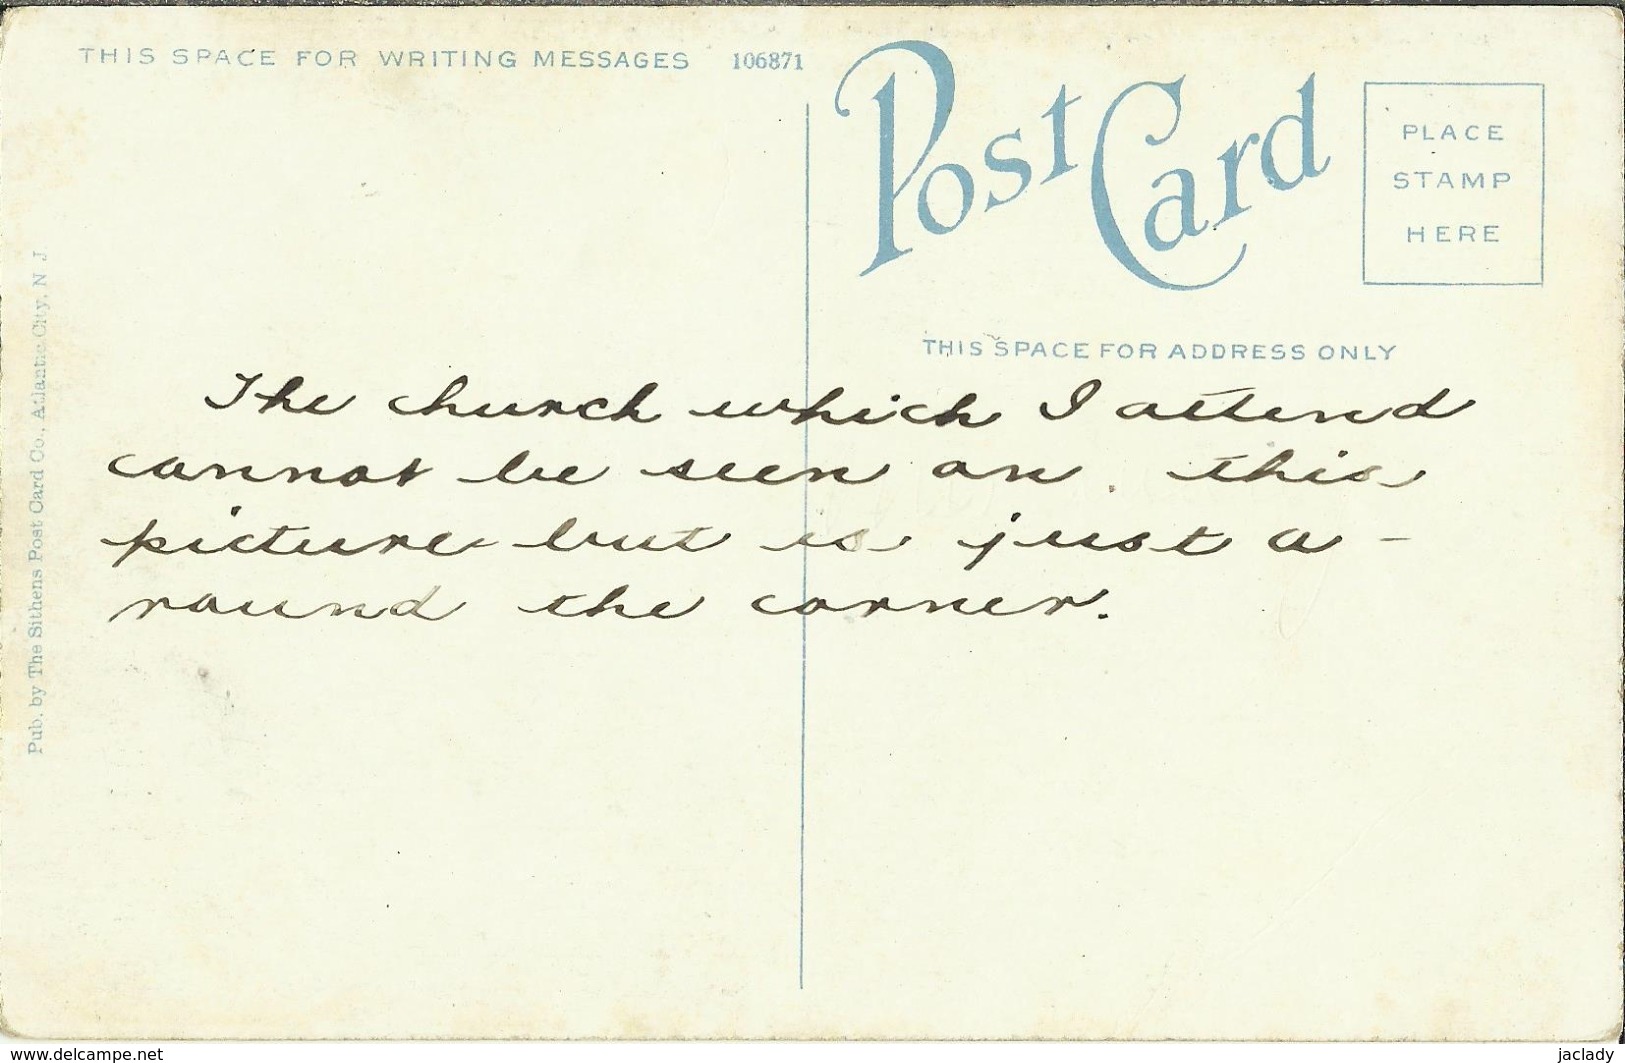 THIS SPACE FOR WRITING MESSAGES 106871
Post Card
PLACE
STAMP
HERE
THIS SPACE FOR ADDRESS ONLY
Pub. by The Sithens Post Card Co., Atlantic City, N J
The church which I attend
cannot be seen on this
picture but is just a-
round the corner.
www.delcampe.net
jaclady